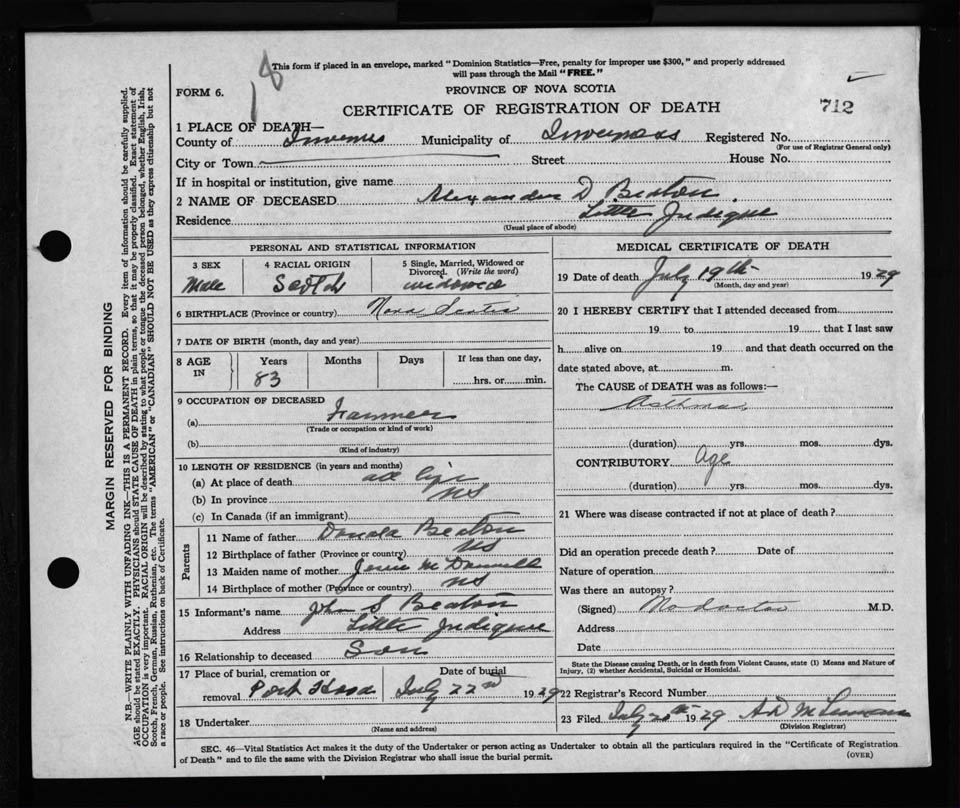 18
This form if placed in an envelope, marked "Dominion Statistics—Free, penalty for improper use $300," and properly addressed
will pass through the Mail "FREE."
FORM 6.
PROVINCE OF NOVA SCOTIA
CERTIFICATE OF REGISTRATION OF DEATH
712
1 PLACE OF DEATH—
County of Inverness Municipality of Inverness Registered No.
(For use of Registrar General only)
City or Town Street House No.
If in hospital or institution, give name
2 NAME OF DECEASED Alexander D Beaton
Residence Little Judique
(Usual place of abode)
PERSONAL AND STATISTICAL INFORMATION
3 SEX 4 RACIAL ORIGIN 5 Single, Married, Widowed or
Divorced. (Write the word)
Male Scotch widowed
6 BIRTHPLACE (Province or country) Nova Scotia
7 DATE OF BIRTH (month, day and year)
8 AGE IN Years Months Days If less than one day,
83 hrs. or min.
9 OCCUPATION OF DECEASED
(a) Farmer
(Trade or occupation or kind of work)
(b)
(Kind of industry)
10 LENGTH OF RESIDENCE (in years and months)
(a) At place of death all life
(b) In province NS
(c) In Canada (if an immigrant)
Parents
11 Name of father Donald Beaton
12 Birthplace of father (Province or country) NS
13 Maiden name of mother
14 Birthplace of mother (Province or country) NS
15 Informant's name John S Beaton
Address Little Judique
16 Relationship to deceased Son
17 Place of burial, cremation or Date of burial
removal Port Hood July 22nd 1929
18 Undertaker
(Name and address)
MEDICAL CERTIFICATE OF DEATH
19 Date of death July 19th 1929
(Month, day and year)
20 I HEREBY CERTIFY that I attended deceased from
19 to 19 that I last saw
h alive on 19 and that death occurred on the
date stated above, at m.
The CAUSE of DEATH was as follows:—
Asthma
(duration) yrs. mos. dys.
CONTRIBUTORY Age
(duration) yrs. mos. dys.
21 Where was disease contracted if not at place of death?
Did an operation precede death? Date of
Nature of operation
Was there an autopsy?
(Signed) No doctor M.D.
Address
Date
State the Disease causing Death, or in death from Violent Causes, state (1) Means and Nature of
Injury, (2) whether Accidental, Suicidal or Homicidal.
22 Registrar's Record Number
23 Filed July 20th 1929 A D
(Division Registrar)
SEC. 46—Vital Statistics Act makes it the duty of the Undertaker or person acting as Undertaker to obtain all the particulars required in the "Certificate of Registration
of Death" and to file the same with the Division Registrar who shall issue the burial permit.
(OVER)
MARGIN RESERVED FOR BINDING
N.B.—WRITE PLAINLY WITH UNFADING INK—THIS IS A PERMANENT RECORD. Every item of information should be carefully supplied.
AGE should be stated EXACTLY. PHYSICIANS should STATE CAUSE OF DEATH in plain terms, so that it may be properly classified. Exact statement of
OCCUPATION is very important. RACIAL ORIGIN will be described by stating to what people or tongue the deceased person belonged, whether English, Irish,
Scotch, French, German, Russian, Ruthenian, etc. The terms "AMERICAN" or "CANADIAN" SHOULD NOT BE USED as they express citizenship but not
a race or people. See instructions on back of Certificate.